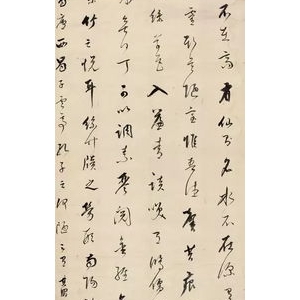 不在高有仙則名水不在深有
靈斯是陋室惟吾德馨苔痕
綠草色入簾青談笑有鴻儒
無白丁可以調素琴閱金經
竹之悅耳無牘之勞形南陽
廬西蜀子雲亭孔子云何陋之有其昌